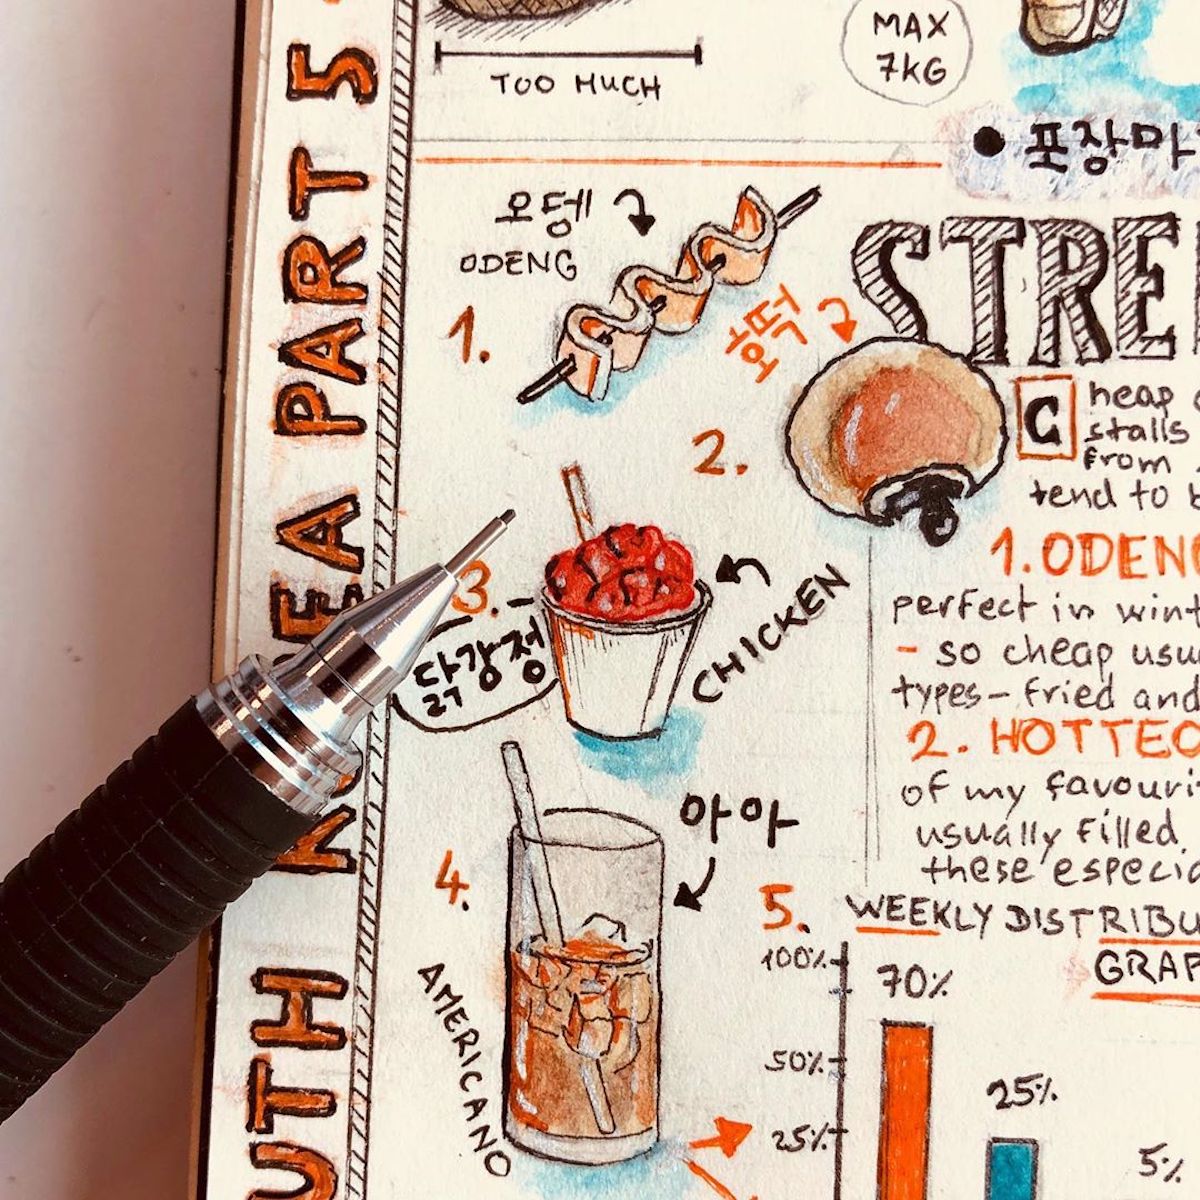 SOUTH KOREA PART 5
TOO MUCH
MAX
7KG
오뎅
ODENG
1.
호떡
2.
3.
닭강정
CHICKEN
아아
4.
AMERICANO
• 포장마
STRE
Cheap
stalls
from
tend to
1. ODENG
perfect in
- so cheap
types - fried and
2. HOTTEO
of my
usually filled,
these
5.
WEEKLY
GRAP
100%
50%
25%
70%
25%
5%